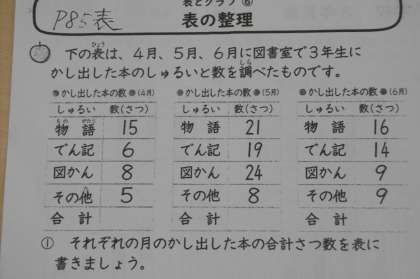 表とグラフ ⑥
P85表
表の整理
下の表は、4月、5月、6月に図書室で3年生に
かし出した本のしゅるいと数を調べたものです。
かし出した本の数(4月)
しゅるい 数(さつ)
物語 15
でん記 6
図かん 8
その他 5
合計
かし出した本の数(5月)
しゅるい 数(さつ)
物語 21
でん記 19
図かん 24
その他 8
合計
かし出した本の数(6月)
しゅるい 数(さつ)
物語 16
でん記 14
図かん 9
その他 9
合計
① それぞれの月のかし出した本の合計さつ数を表に
書きましょう。